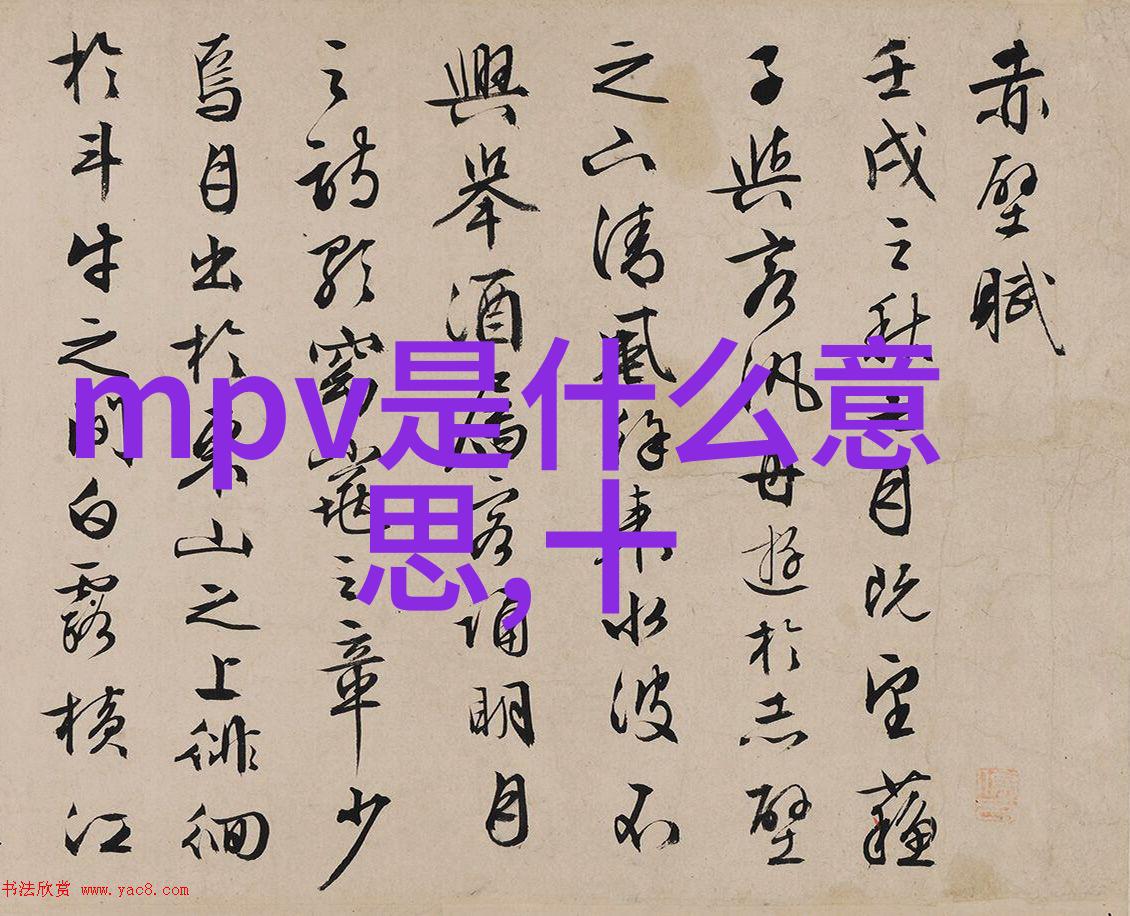 赤壁賦
壬戌之秋七月既望蘇
子與客汎舟遊於赤壁
之下清風徐來水波不
興舉酒屬客誦明月
之詩歌窈窕之章少
焉月出於東山之上徘徊
於斗牛之間白露橫江
mpv是什么意
思,十
书法欣赏 www.yac8.com